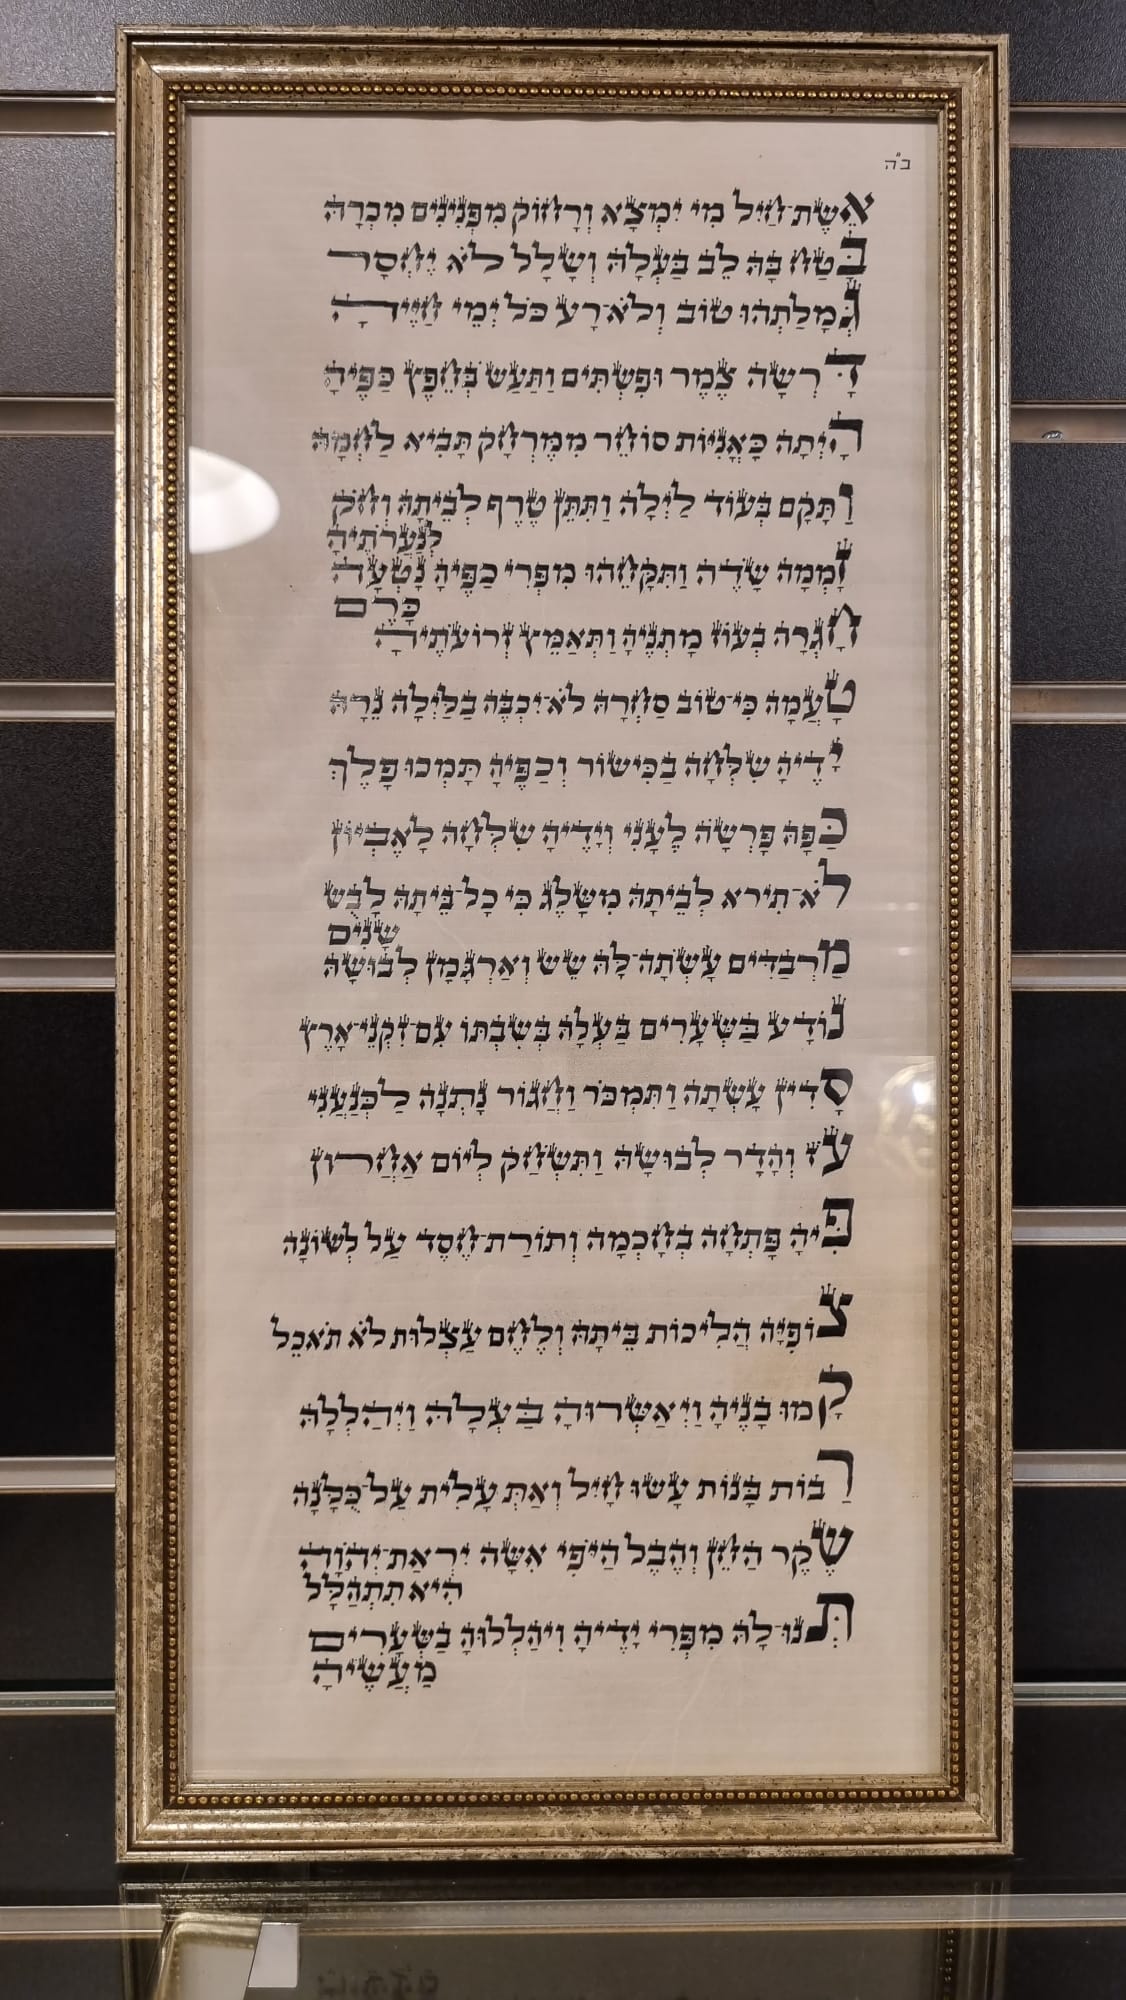 ב"ה
אֵשֶׁת־חַיִל מִי יִמְצָא וְרָחוֹק מִפְּנִינִים מִכְרָהּ
בָּטַח בָּהּ לֵב בַּעְלָהּ וְשָׁלָל לֹא יֶחְסָר
גְּמָלַתְהוּ טוֹב וְלֹא־רָע כֹּל יְמֵי חַיֶּיהָ
דָּרְשָׁה צֶמֶר וּפִשְׁתִּים וַתַּעַשׂ בְּחֵפֶץ כַּפֶּיהָ
הָיְתָה כָּאֳנִיּוֹת סוֹחֵר מִמֶּרְחָק תָּבִיא לַחְמָהּ
וַתָּקָם בְּעוֹד לַיְלָה וַתִּתֵּן טֶרֶף לְבֵיתָהּ וְחֹק
לְנַעֲרֹתֶיהָ
זָמְמָה שָׂדֶה וַתִּקָּחֵהוּ מִפְּרִי כַפֶּיהָ נָטְעָה
כָּרֶם
חָגְרָה בְעוֹז מָתְנֶיהָ וַתְּאַמֵּץ זְרוֹעֹתֶיהָ
טָעֲמָה כִּי־טוֹב סַחְרָהּ לֹא־יִכְבֶּה בַלַּיְלָה נֵרָהּ
יָדֶיהָ שִׁלְּחָה בַכִּישׁוֹר וְכַפֶּיהָ תָּמְכוּ פָלֶךְ
כַּפָּהּ פָּרְשָׂה לֶעָנִי וְיָדֶיהָ שִׁלְּחָה לָאֶבְיוֹן
לֹא־תִירָא לְבֵיתָהּ מִשָּׁלֶג כִּי כָל־בֵּיתָהּ לָבֻשׁ
שָׁנִים
מַרְבַדִּים עָשְׂתָה־לָּהּ שֵׁשׁ וְאַרְגָּמָן לְבוּשָׁהּ
נוֹדָע בַּשְּׁעָרִים בַּעְלָהּ בְּשִׁבְתּוֹ עִם־זִקְנֵי־אָרֶץ
סָדִין עָשְׂתָה וַתִּמְכֹּר וַחֲגוֹר נָתְנָה לַכְּנַעֲנִי
עֹז וְהָדָר לְבוּשָׁהּ וַתִּשְׂחַק לְיוֹם אַחֲרוֹן
פִּיהָ פָּתְחָה בְחָכְמָה וְתוֹרַת־חֶסֶד עַל לְשׁוֹנָהּ
צוֹפִיָּה הֲלִיכוֹת בֵּיתָהּ וְלֶחֶם עַצְלוּת לֹא תֹאכֵל
קָמוּ בָנֶיהָ וַיְאַשְּׁרוּהָ בַּעְלָהּ וַיְהַלְלָהּ
רַבּוֹת בָּנוֹת עָשׂוּ חָיִל וְאַתְּ עָלִית עַל־כֻּלָּנָה
שֶׁקֶר הַחֵן וְהֶבֶל הַיֹּפִי אִשָּׁה יִרְאַת־יְהוָה
הִיא תִתְהַלָּל
תְּנוּ־לָהּ מִפְּרִי יָדֶיהָ וִיהַלְלוּהָ בַשְּׁעָרִים
מַעֲשֶׂיהָ